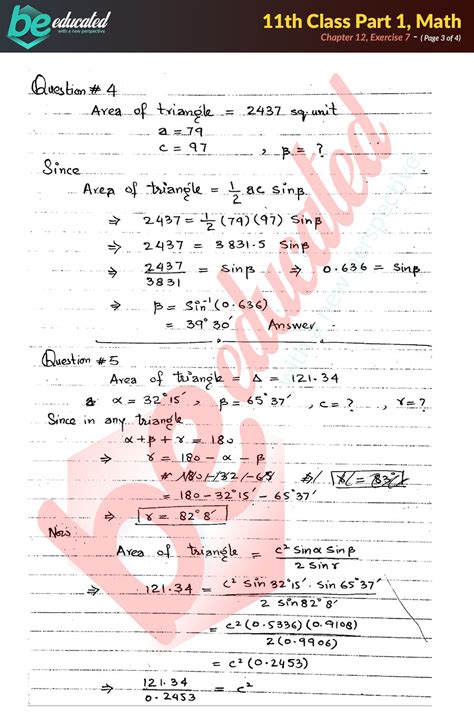 be educated
with a new perspective
11th Class Part 1, Math
Chapter 12, Exercise 7 - ( Page 3 of 4)
Question # 4
Area of triangle = 2437 sq unit
a = 79
c = 97 , β = ?
Since
Area of triangle = 1/2 ac sinβ
⇒ 2437 = 1/2 (79)(97) Sinβ
⇒ 2437 = 3831.5 Sinβ
⇒ 2437/3831 = Sinβ ⇒ 0.636 = Sinβ
⇒ β = Sin⁻¹(0.636)
= 39° 30′ Answer
Question #5
Area of triangle = Δ = 121.34
α = 32°15′ , β = 65°37′ , c = ? , γ = ?
Since in any triangle
α + β + γ = 180
⇒ γ = 180 - α - β
= 180 - 32°15′ - 65°37′
⇒ γ = 82° 8′
Now
Area of triangle = c² Sinα Sinβ / 2 Sinγ
⇒ 121.34 = c² Sin 32°15′ . Sin 65°37′ / 2 Sin 82°8′
= c² (0.5336)(0.9108) / 2(0.9906)
= c² (0.2453)
⇒ 121.34 / 0.2453 = c²
be educated
with a new perspective